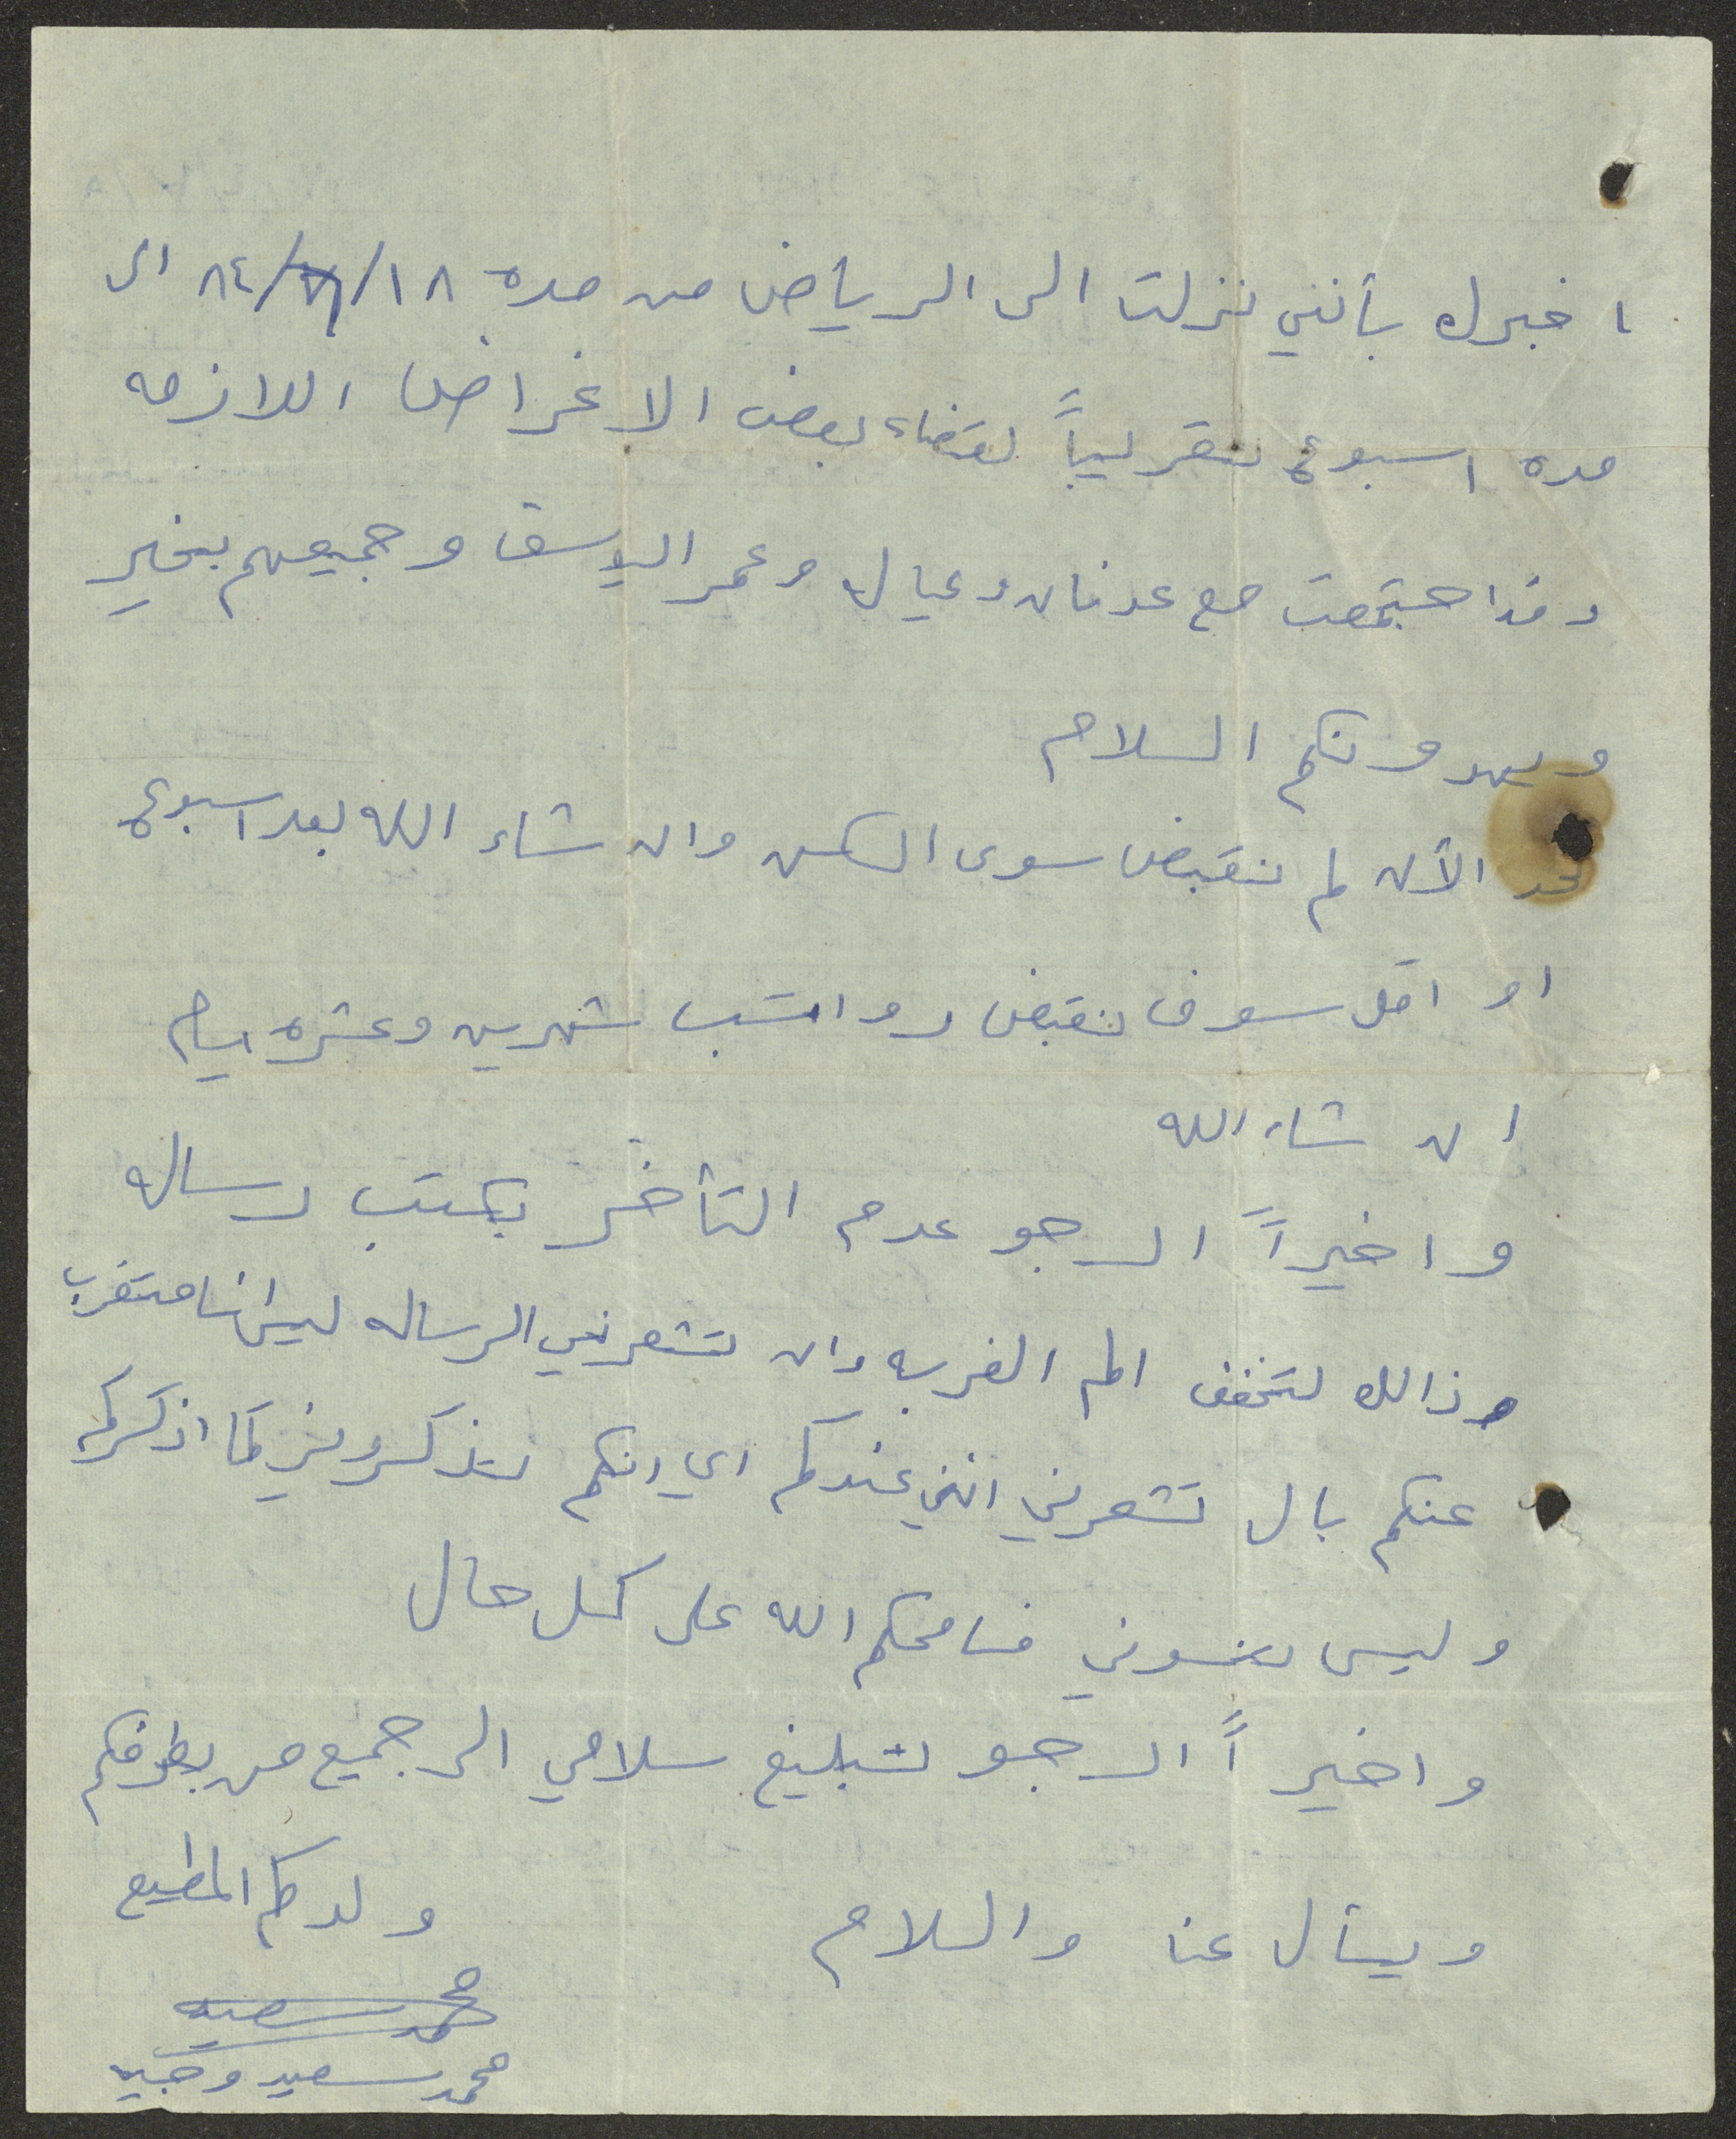 اخبرك بأنني نزلت الى الرياض من مدة ١٨/٦/٨٤ الى
مده اسبوع تقريباً لقضاء بعض الاغراض اللازمه
وقد اجتمعت مع عدنان وعياله وعمر اليوسف وجميعهم بخير
ويهدونكم السلام
لحد الآن لم نقبض سوى السكن وان شاء الله بعد اسبوع
او اقل سوف نقبض رواتب شهرين وعشرة ايام
ان شاء الله
واخيراً ارجو عدم التأخر بكتب رساله
وذالك لتخفف الم الغربه وان تشعرني الرساله ليس انا متغرب
عنكم بال تشعرني انني عندكم اي انكم تذكروني كما اذكركم
وليس تنسوني فسامحكم الله على كل حال
واخيراً ارجو تبليغ سلامي الى جميع من بطرفكم
ويسأل عنا والسلام
ولدكم المطيع
محمد سعيد
محمد سعيد وجيه